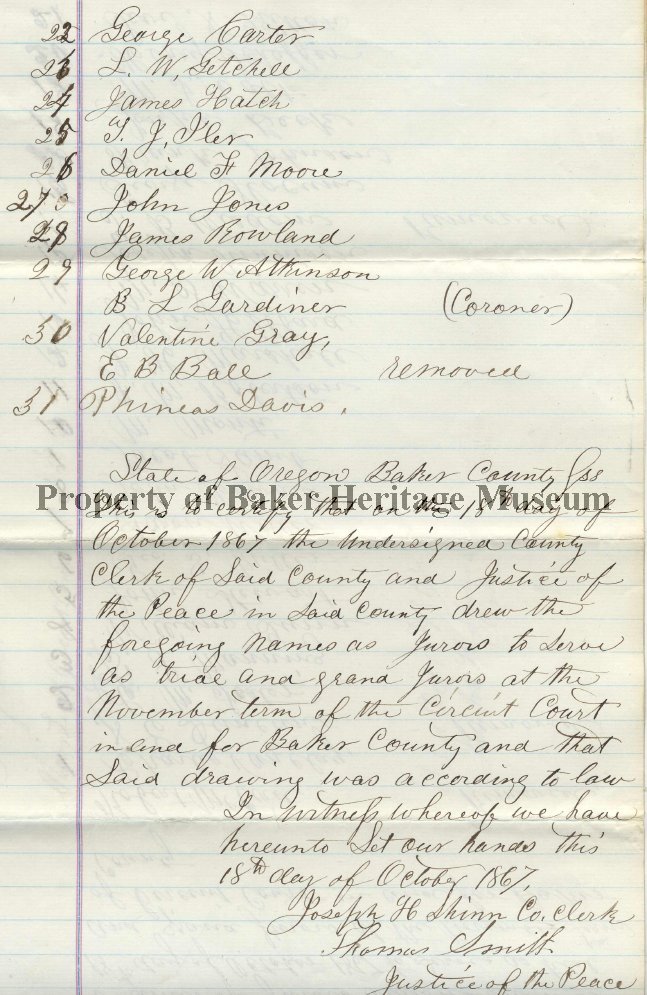 22 George Carter
23 L. W. Getchell
24 James Hatch
25 T. J. Iler
26 Daniel F Moore
27 John Jones
28 James Rowland
29 George W Atkinson
B L Gardiner (Coroner)
30 Valentine Gray,
E B Ball removed
31 Phineas Davis.
State of Oregon Baker County Sss
Property of Baker Heritage Museum
This is to certify that on the 18th day of
October 1867 the undersigned County
Clerk of Said County and Justice of
the Peace in Said County drew the
foregoing names as Jurors to Serve
as trial and grand Jurors at the
November term of the Circuit Court
in and for Baker County and that
Said drawing was according to law
In witness whereof we have
hereunto Set our hands this
18th day of October 1867,
Joseph H Shinn Co, Clerk
Thomas Smith
Justice of the Peace